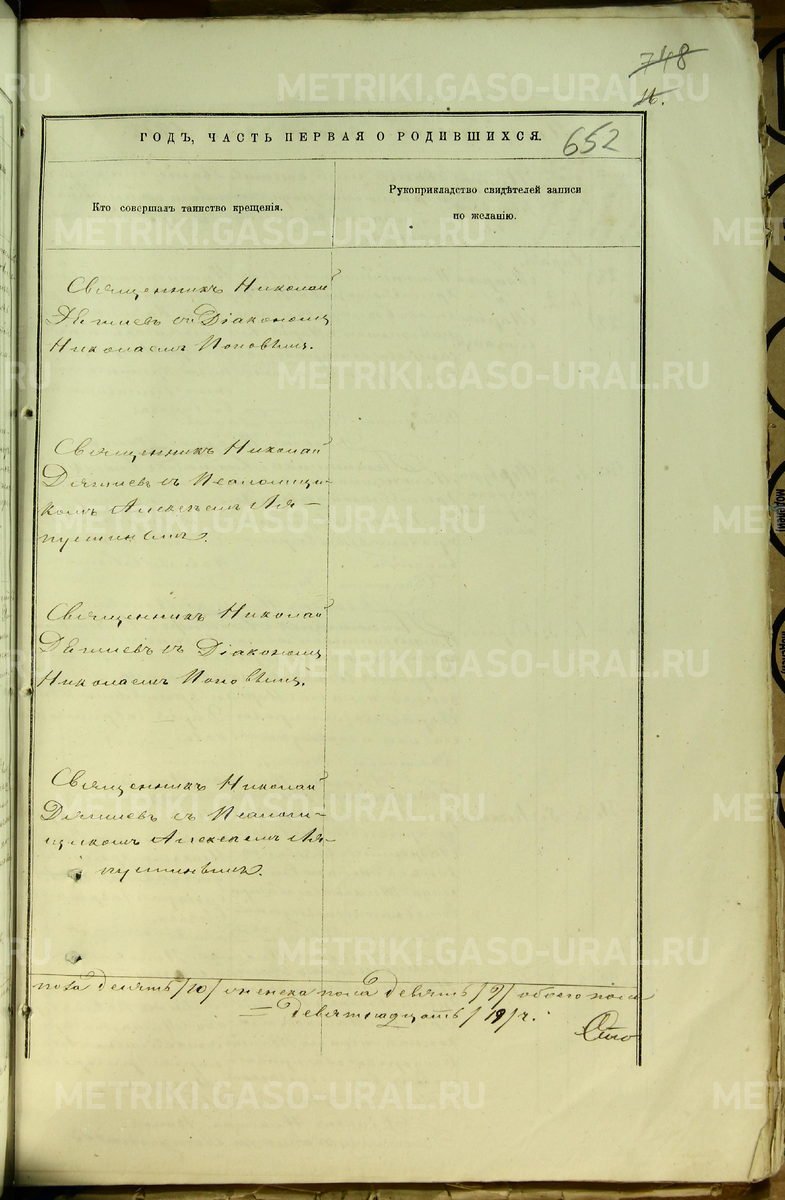 748
16.
ГОДЪ, ЧАСТЬ ПЕРВАЯ О РОДИВШИХСЯ.
652
Кто совершалъ таинство крещенія.
Рукоприкладство свидѣтелей записи
по желанію.
Священникъ Николай
съ Діакономъ
Николаемъ Поповымъ.
Священникъ Николай
съ Псаломщи-
комъ Алексѣемъ Ля-
пустинымъ.
Священникъ Николай
съ Діакономъ
Николаемъ Поповымъ.
Священникъ Николай
съ Псалом-
щикомъ Алексѣемъ Ля-
пустинымъ.
пола десять /10/ женска пола девять /9/ обоего пола
= девятнадцать /19/ ч.
METRIKI.GASO-URAL.RU